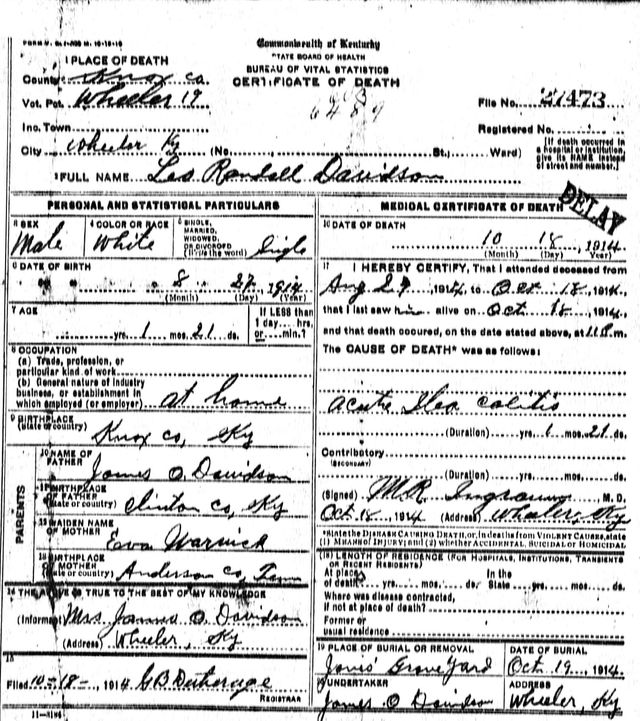 Commonwealth of Kentucky
STATE BOARD OF HEALTH
BUREAU OF VITAL STATISTICS
CERTIFICATE OF DEATH
1 PLACE OF DEATH
County Knox Co
Vot. Pct. Wheeler 19
Inc. Town
City Wheeler Ky (No. St.; Ward)
File No. 27473
Registered No.
(If death occurred in a hospital or institution, give its NAME instead of street and number.)
2 FULL NAME Leo Randell Davidson
DELAY
PERSONAL AND STATISTICAL PARTICULARS
3 SEX Male
4 COLOR OR RACE White
5 SINGLE, MARRIED, WIDOWED, OR DIVORCED (Write the word) Single
6 DATE OF BIRTH 8 27, 1914
(Month) (Day) (Year)
7 AGE yrs. 1 mos. 21 ds.
If LESS than 1 day ... hrs. or ... min.?
8 OCCUPATION
(a) Trade, profession, or particular kind of work
(b) General nature of industry business, or establishment in which employed (or employer) at home
9 BIRTHPLACE (State or country) Knox Co, Ky
PARENTS
10 NAME OF FATHER James O. Davidson
11 BIRTHPLACE OF FATHER (State or country) Clinton Co, Ky
12 MAIDEN NAME OF MOTHER Eva Warwick
13 BIRTHPLACE OF MOTHER (State or country) Anderson Co, Tenn
14 THE ABOVE IS TRUE TO THE BEST OF MY KNOWLEDGE
(Informant) Mrs. James O. Davidson
(Address) Wheeler, Ky
15
Filed 10-18-, 1914
REGISTRAR
11-3184
MEDICAL CERTIFICATE OF DEATH
16 DATE OF DEATH
10 18, 1914
(Month) (Day) (Year)
17 I HEREBY CERTIFY, That I attended deceased from
Aug 27, 1914, to Oct 18, 1914,
that I last saw him alive on Oct 18, 1914,
and that death occured, on the date stated above, at 11 P.m.
The CAUSE OF DEATH* was as follows:
Acute Ileo Colitis
(Duration) yrs. 1 mos. 21 ds.
Contributory
(SECONDARY)
(Duration) yrs. mos. ds.
(Signed) M.R. Ingram, M. D.
Oct 18, 1914 (Address) Wheeler, Ky
*State the DISEASE CAUSING DEATH, or, in deaths from VIOLENT CAUSES, state (1) MEANS OF INJURY; and (2) whether ACCIDENTAL, SUICIDAL OR HOMICIDAL
18 LENGTH OF RESIDENCE (FOR HOSPITALS, INSTITUTIONS, TRANSIENTS OR RECENT RESIDENTS)
At place of death yrs. mos. ds. In the State yrs. mos. ds.
Where was disease contracted, if not at place of death?
Former or usual residence
19 PLACE OF BURIAL OR REMOVAL Jones Grave Yard
DATE OF BURIAL Oct 19, 1914
UNDERTAKER James O Davidson
ADDRESS Wheeler, Ky